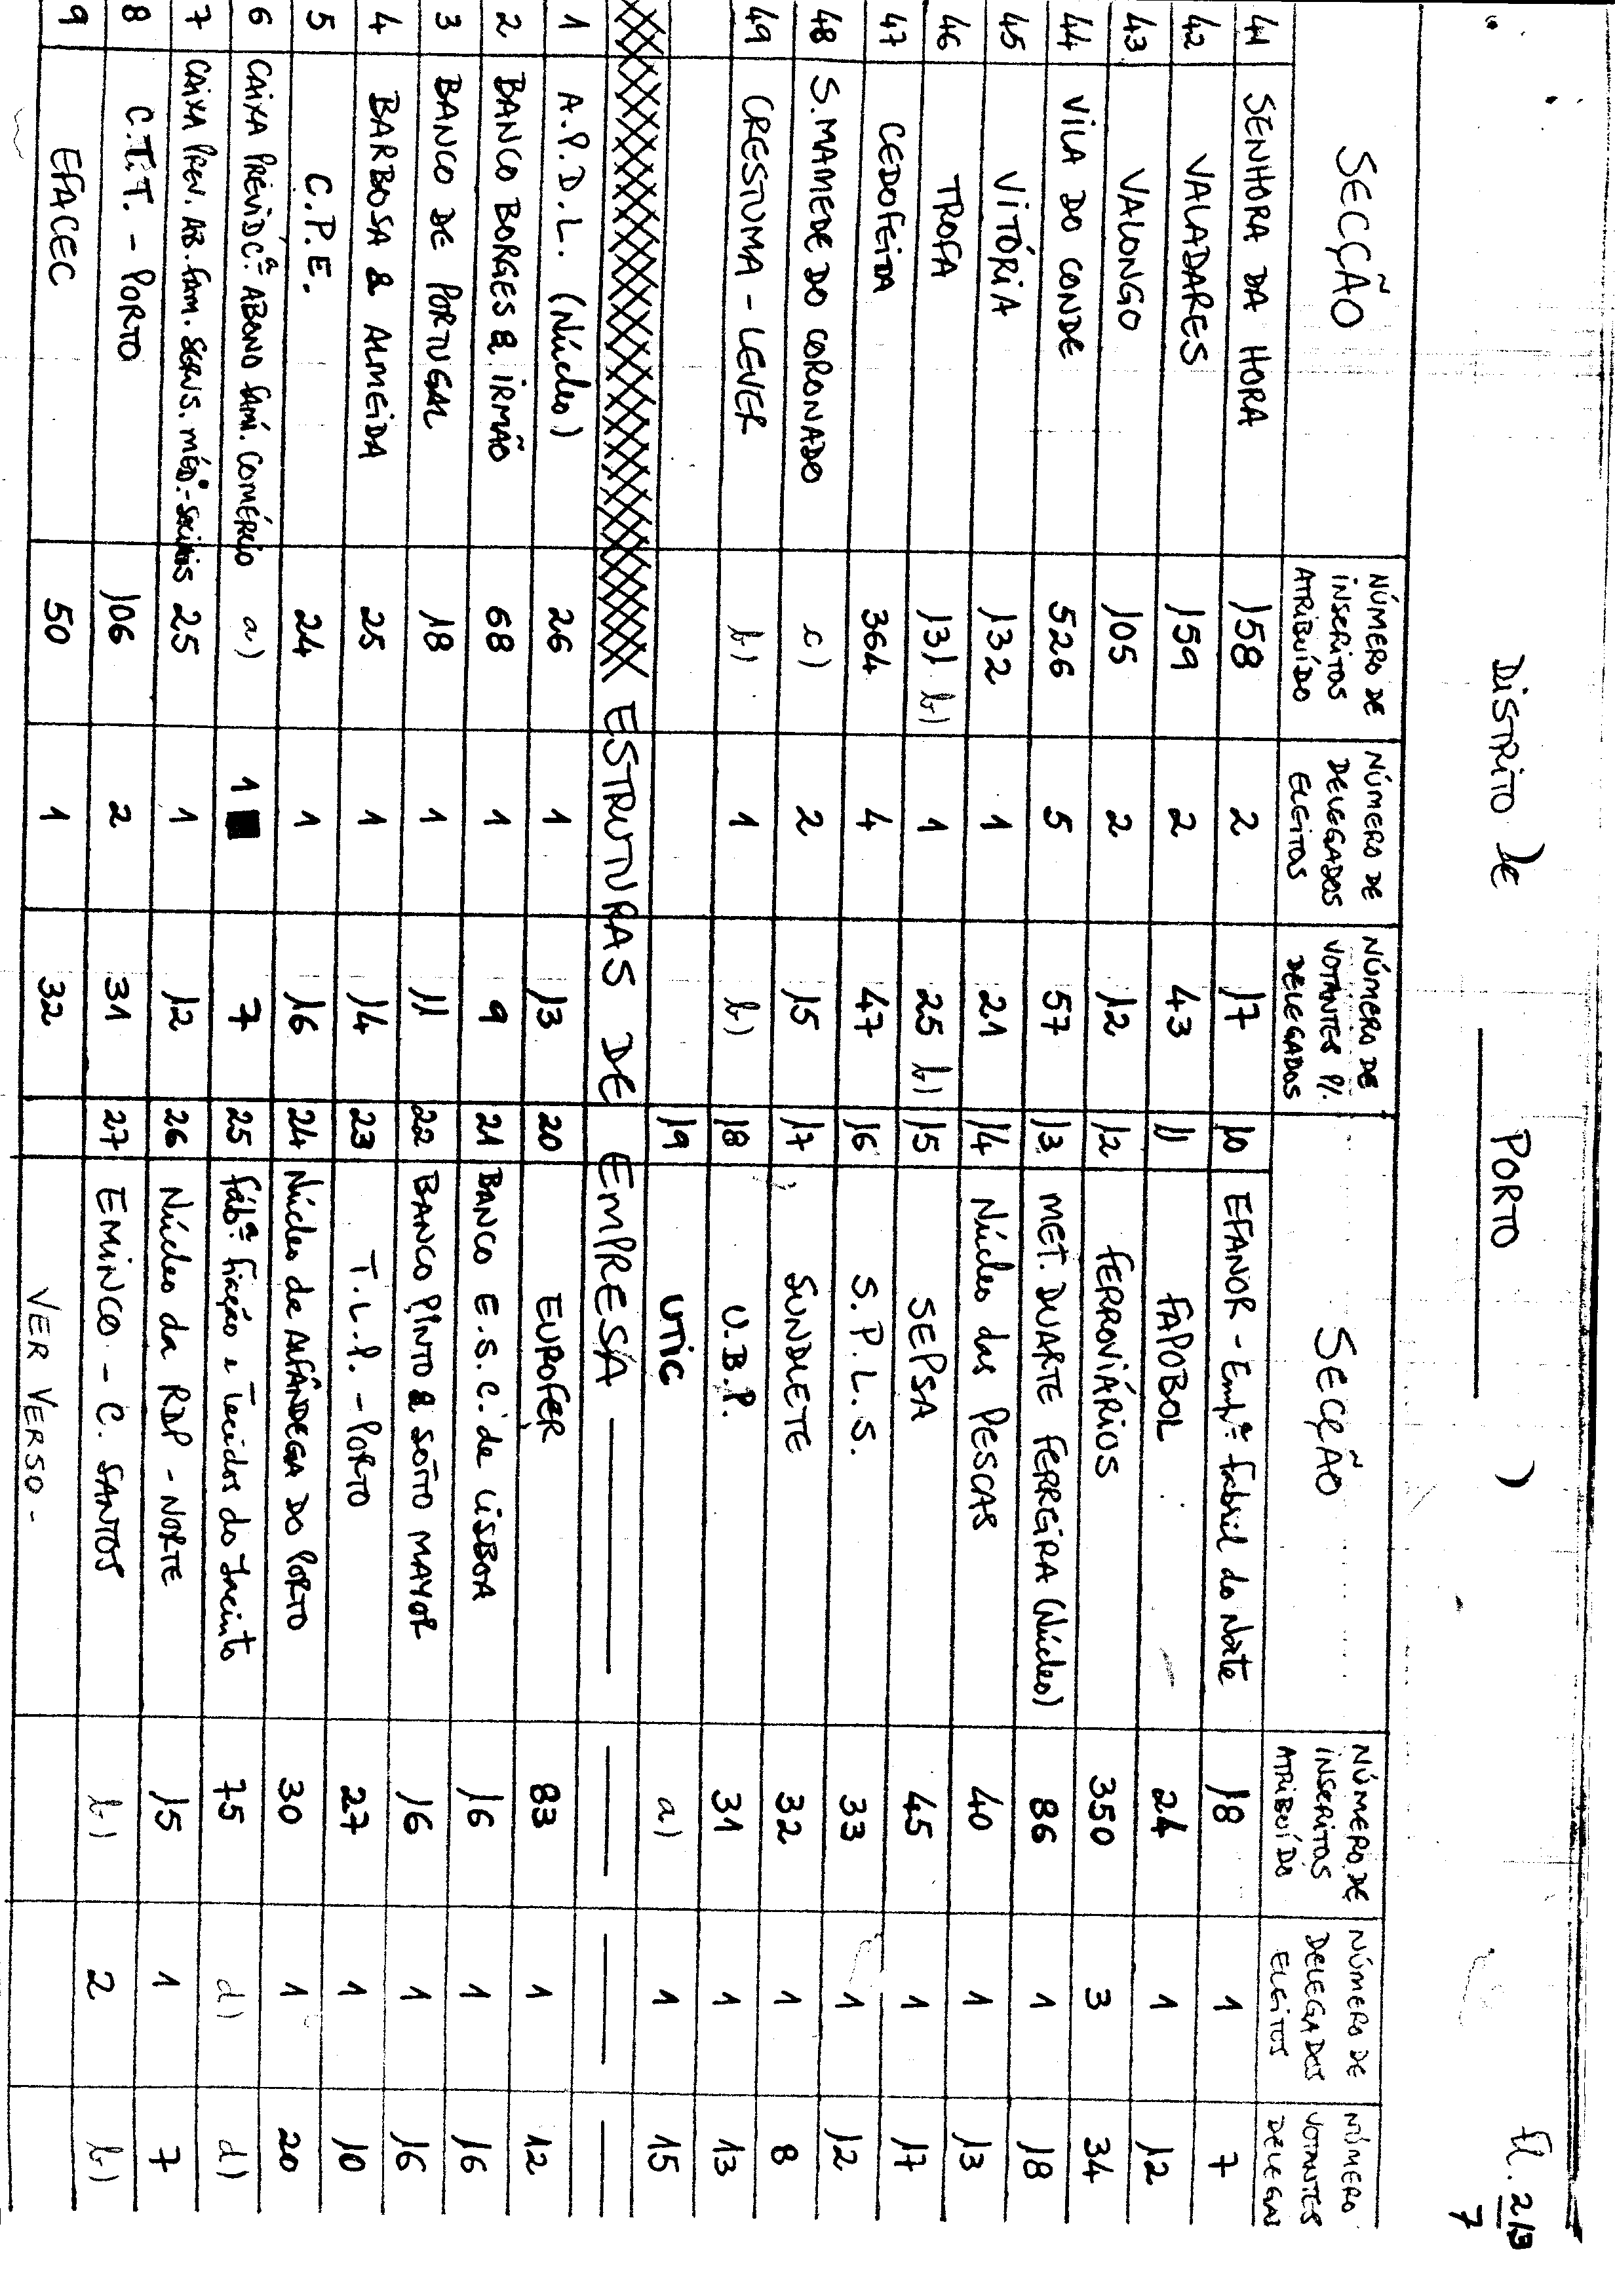 Fl. 2/B
7
DISTRITO de PORTO )
SECÇÃO | NÚMERO DE INSCRITOS ATRIBUÍDO | NÚMERO DE DELEGADOS ELEITOS | NÚMERO DE VOTANTES P/. DELEGADOS | SECÇÃO | NÚMERO DE INSCRITOS ATRIBUÍDO | NÚMERO DE DELEGADOS ELEITOS | NÚMERO VOTANTES DELEGA
41 SENHORA DA HORA 158 2 17 10 EFANOR - Empª. Fabril do Norte 18 1 7
42 VALADARES 159 2 43 11 FAPOBOL 24 1 12
43 VALONGO 105 2 12 12 FERROVIÁRIOS 350 3 34
44 VILA DO CONDE 526 5 57 13 MET. DUARTE FERREIRA (Núcleo) 86 1 18
45 VITÓRIA 132 1 21 14 Núcleo das PESCAS 40 1 13
46 TROFA 131 b) 1 25 b) 15 SEPSA 45 1 17
47 CEDOFEITA 364 4 47 16 S.P.L.S. 33 1 12
48 S. MAMEDE DO CORONADO c) 2 15 17 SUNDLETE 32 1 8
49 CRESTUMA - LEVER b) 1 b) 18 U.B.P. 31 1 13
19 UTIC a) 1 15
ESTRUTURAS DE EMPRESA
1 A.P.D.L. (Núcleo) 26 1 13 20 EUROFER 83 1 12
2 BANCO BORGES & IRMÃO 68 1 9 21 BANCO E.S.C. de LISBOA 16 1 16
3 BANCO DE PORTUGAL 18 1 11 22 BANCO PINTO & SOTTO MAYOR 16 1 16
4 BARBOSA & ALMEIDA 25 1 14 23 T.L.P. - PORTO 27 1 10
5 C.P.E. 24 1 16 24 Núcleo da ALFÂNDEGA DO PORTO 30 1 20
6 CAIXA PREVIDCª. ABONO FAMÍ. COMÉRCIO a) 1 7 25 Fábª. fiação e Tecidos do Jacinto 75 d) d)
7 CAIXA PREV. AB. FAM. SERVS. MÉDº.-sociais 25 1 12 26 Núcleo da RDP - NORTE 15 1 7
8 C.T.T. - PORTO 106 2 31 27 EMINCO - C. SANTOS b) 2 b)
9 EFACEC 50 1 32 VER VERSO -